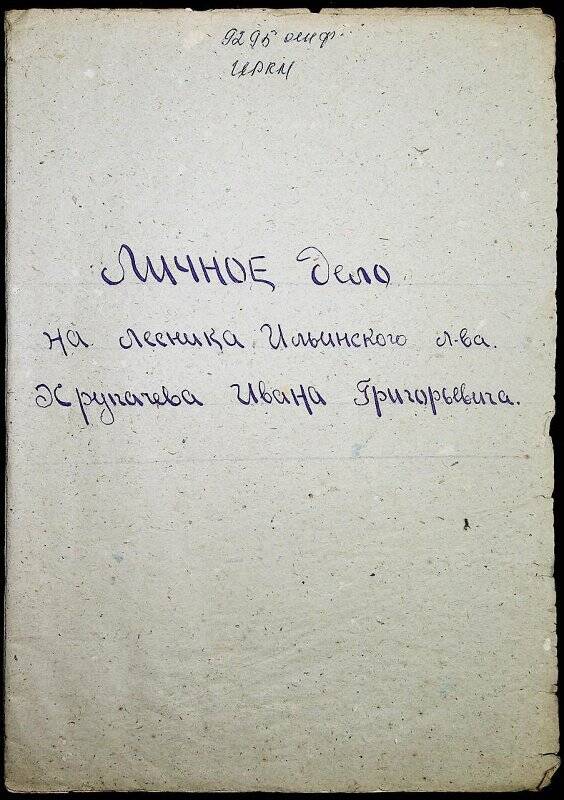 9295 оиф.
ИРКМ
Личное дело
на лесника Ильинского л-ва.
Хругачева Ивана Григорьевича.